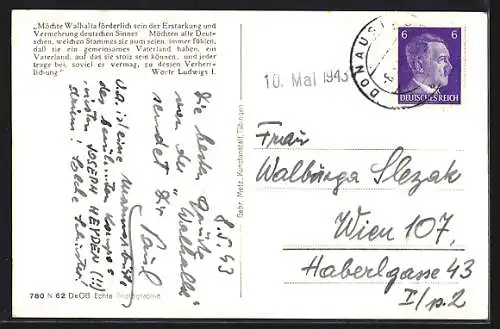 „Möchte Walhalla förderlich sein der Erstarkung und
Vermehrung deutschen Sinnes Möchten alle Deut-
schen, welchen Stammes sie auch seien, immer fühlen,
daß sie ein gemeinsames Vaterland haben, ein
Vaterland, auf das sie stolz sein können, und jeder
trage bei, soviel er vermag, zu dessen Verherr-
lichung" Worte Ludwigs I.
10. Mai 1943
DONAUS
6 6
DEUTSCHES REICH
8.5.43
Die besten Grüße
von der „Walhalla"
sendet Dir Paul
U.a. ist eine Marmorbüste
des berühmten
JOSEPH HEYDEN (!!)
drin!
Gebr. Metz, Kunstanstalt, Tübingen
Frau
Walburga Slezak
Wien 107,
Haberlgasse 43
I/p.2
780 N 62 DeGB Echte Photographie